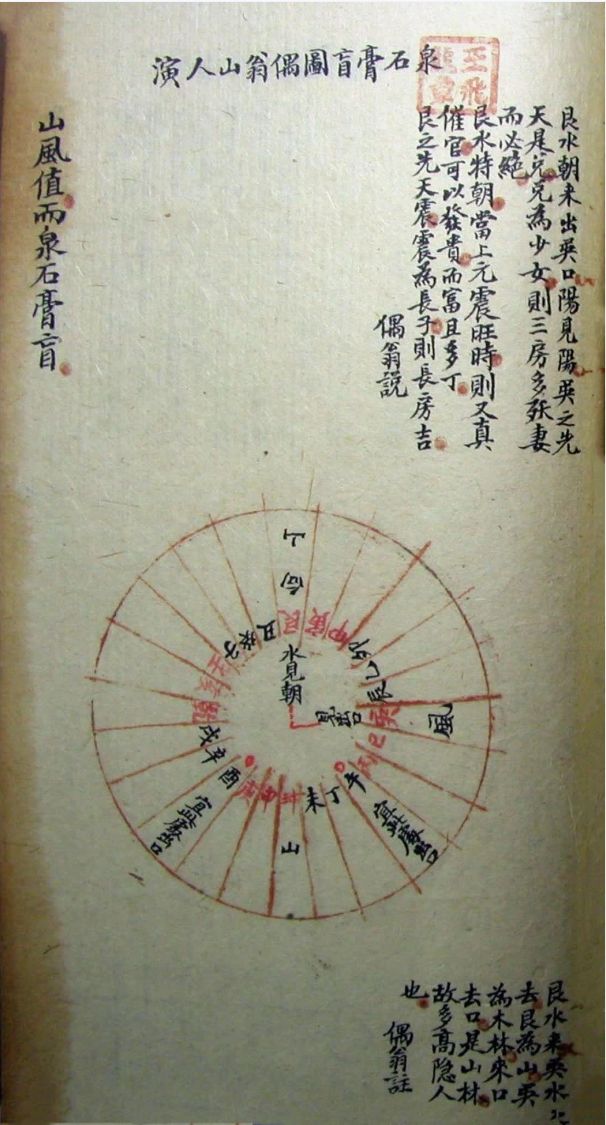 泉石膏盲圖偶翁山人演
艮水朝来出巽口陽見陽巽之先
天是兌兌為少女則三房多殀妻
而必絕
艮水特朝當上元震旺時則又真
催官可以發貴而富且多丁
艮之先天震震為長子則長房吉
偶翁説
山風值而泉石膏盲
山
向
艮
寅
甲
卯
乙
辰
巽
巳
丙
午
丁
未
坤
申
庚
酉
辛
戌
乾
亥
壬
子
癸
丑
水見朝
風
宜此處出口
山
宜此處出口
艮水来巽水
去艮為山巽
為木林來口
去口是山林
故多高隐人
也
偶翁註